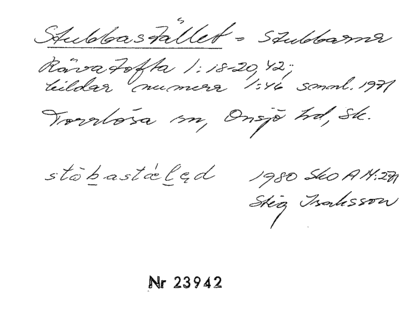 Stubbastället = Stubbarna
Rävatofta 1:18-20, 42;
bildar numera 1:46 samml. 1971
Torrlösa sn, Onsjö hd, Sk.
stòbastǽlęd 1980
Stig Isaksson
Nr 23942